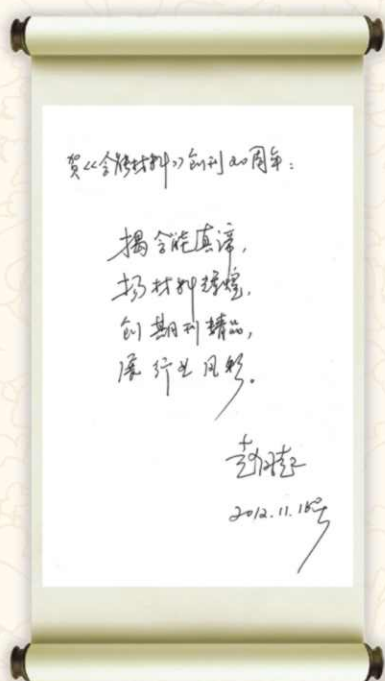 贺《含能材料》创刊20周年:
揭含能真谛,
扬材料辉煌,
创期刊精品,
展行业风彩。
2012.11.18号